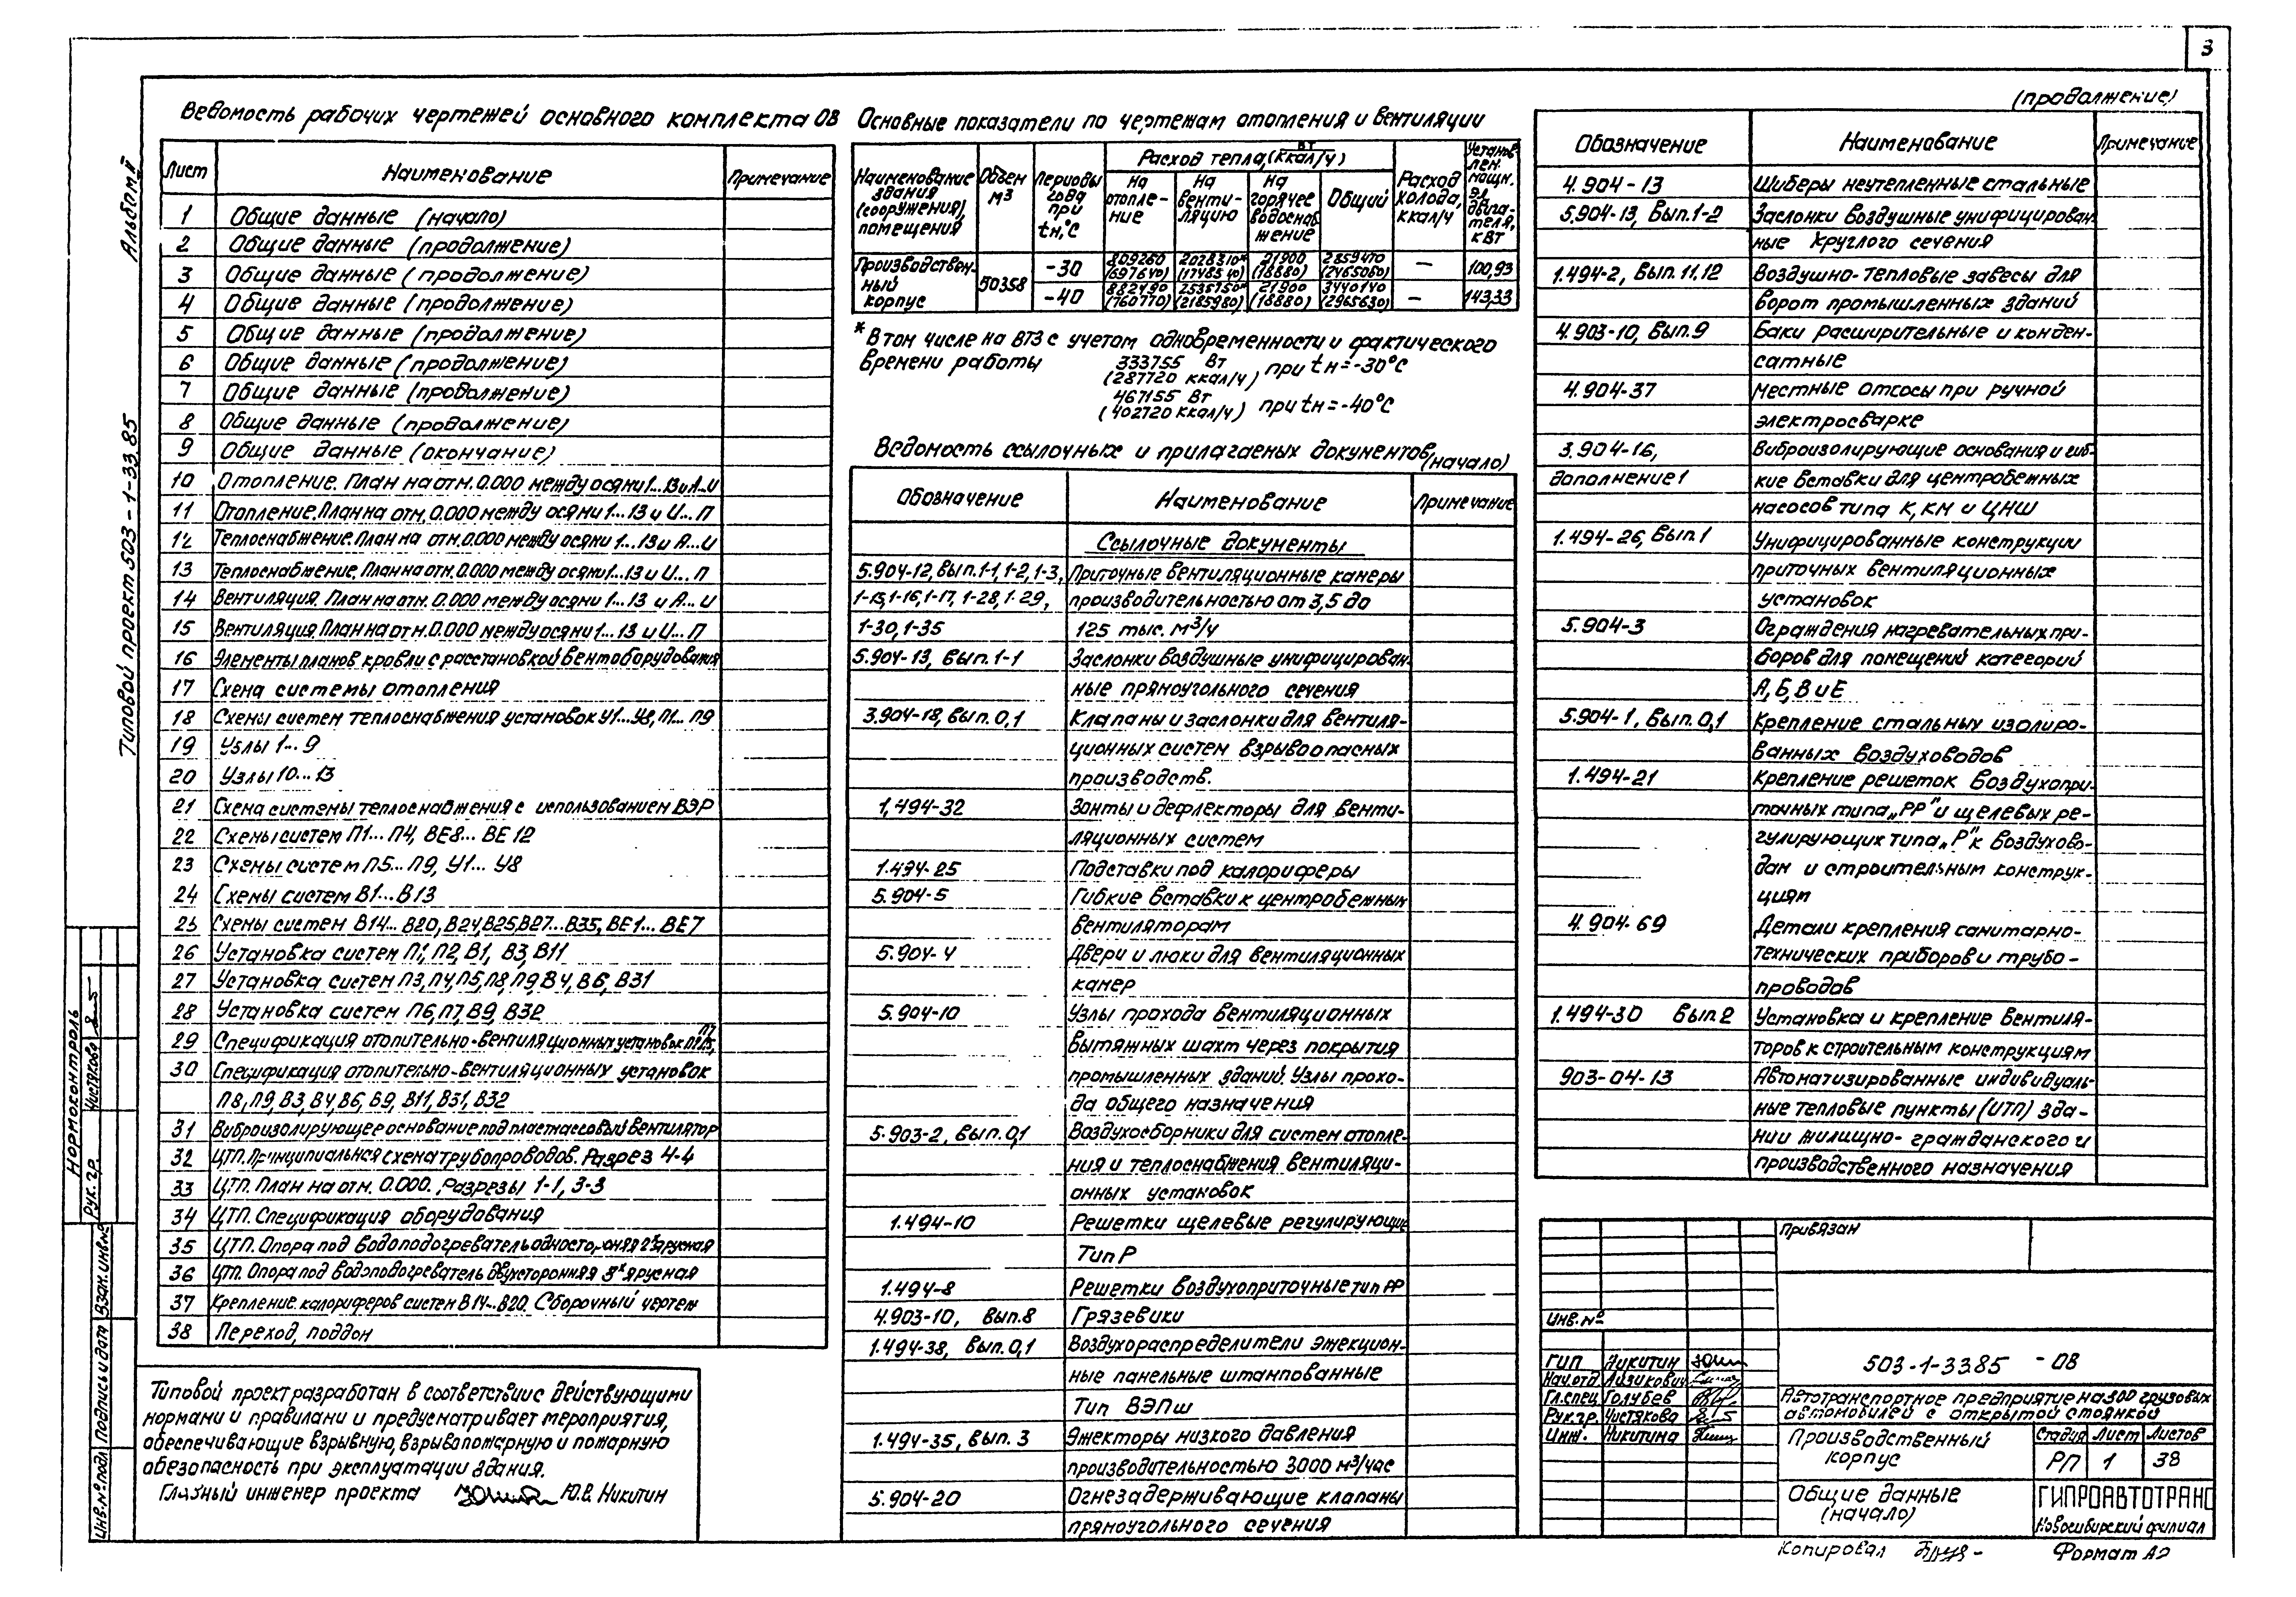 3
Альбом II
Типовой проект 503-1-33.85
Ведомость рабочих чертежей основного комплекта ОВ
Лист Наименование Примечание
1 Общие данные (начало)
2 Общие данные (продолжение)
3 Общие данные (продолжение)
4 Общие данные (продолжение)
5 Общие данные (продолжение)
6 Общие данные (продолжение)
7 Общие данные (продолжение)
8 Общие данные (продолжение)
9 Общие данные (окончание)
10 Отопление. План на отм. 0.000 между осями 1...13 и А...И
11 Отопление. План на отм. 0.000 между осями 1...13 и И...П
12 Теплоснабжение. План на отм. 0.000 между осями 1...13 и А...И
13 Теплоснабжение. План на отм. 0.000 между осями 1...13 и И...П
14 Вентиляция. План на отм. 0.000 между осями 1...13 и А...И
15 Вентиляция. План на отм. 0.000 между осями 1...13 и И...П
16 Элементы планов кровли с расстановкой вентоборудования
17 Схема системы отопления
18 Схемы систем теплоснабжения установок У1...У8, П1...П9
19 Узлы 1...9
20 Узлы 10...13
21 Схема системы теплоснабжения с использованием ВЭР
22 Схемы систем П1...П4, ВЕ8...ВЕ12
23 Схемы систем П5...П9, У1...У8
24 Схемы систем В1...В13
25 Схемы систем В14...В20, В24, В25, В27...В35, ВЕ1...ВЕ7
26 Установка систем П1, П2, В1, В3, В11
27 Установка систем П3, П4, П5, П8, П9, В4, В6, В31
28 Установка систем П6, П7, В9, В32
29 Спецификация отопительно-вентиляционных установок
30 Спецификация отопительно-вентиляционных установок
П8, П9, В3, В4, В6, В9, В11, В31, В32
31 Виброизолирующее основание под пластмассовый вентилятор
32 ЦТП. Принципиальная схема трубопроводов. Разрез 4-4
33 ЦТП. План на отм. 0.000. Разрезы 1-1, 3-3
34 ЦТП. Спецификация оборудования
35 ЦТП. Опора под водоподогреватель односторонняя 2х ярусная
36 ЦТП. Опора под водоподогреватель двухсторонняя 3х ярусная
37 Крепление калориферов систем В14...В20. Сборочный чертеж
38 Переход, поддон
Типовой проект разработан в соответствие действующими
нормами и правилами и предусматривает мероприятия,
обеспечивающие взрывную, взрывопожарную и пожарную
обезопасность при эксплуатации здания.
Главный инженер проекта Ю.В. Никитин
Основные показатели по чертежам отопления и вентиляции
Наименование здания (сооружения), помещения Объем м3 Периоды года при tн,°С Расход тепла, Вт (ккал/ч) Расход холода, ккал/ч Установлен. мощн. эл. двигателя, кВт
На отопление На вентиляцию На горячее водоснабжение Общий
Производственный корпус 50358
-30 809260 (697640) 2028310* (1748540) 21900 (18880) 2859470 (2465060) — 100,93
-40 882490 (760770) 2535750* (2185980) 21900 (18880) 3440140 (2965630) — 143,33
* В том числе на ВТЗ с учетом одновременности и фактического
времени работы 333755 Вт (287720 ккал/ч) при tн=-30°С
467155 Вт (402720 ккал/ч) при tн=-40°С
Ведомость ссылочных и прилагаемых документов (начало)
Обозначение Наименование Примечание
Ссылочные документы
5.904-12, вып. 1-1, 1-2, 1-3, Приточные вентиляционные камеры
1-15, 1-16, 1-17, 1-28, 1-29, производительностью от 3,5 до
1-30, 1-35 125 тыс. м3/ч
5.904-13, вып. 1-1 Заслонки воздушные унифицирован-
ные прямоугольного сечения
3.904-18, вып. 0,1 Клапаны и заслонки для вентиля-
ционных систем взрывоопасных
производств.
1.494-32 Зонты и дефлекторы для венти-
ляционных систем
1.494-25 Подставки под калориферы
5.904-5 Гибкие вставки к центробежным
вентиляторам
5.904-4 Двери и люки для вентиляционных
камер
5.904-10 Узлы прохода вентиляционных
вытяжных шахт через покрытия
промышленных зданий. Узлы прохо-
да общего назначения
5.903-2, вып. 0,1 Воздухосборники для систем отопле-
ния и теплоснабжения вентиляци-
онных установок
1.494-10 Решетки щелевые регулирующие
Тип Р
1.494-8 Решетки воздухоприточные тип РР
4.903-10, вып. 8 Грязевики
1.494-38, вып. 0,1 Воздухораспределители эжекцион-
ные панельные штампованные
Тип ВЭПш
1.494-35, вып. 3 Эжекторы низкого давления
производительностью 3000 м3/час
5.904-20 Огнезадерживающие клапаны
прямоугольного сечения
(продолжение)
Обозначение Наименование Примечание
4.904-13 Шиберы неутепленные стальные
5.904-13, вып. 1-2 Заслонки воздушные унифицирован-
ные круглого сечения
1.494-2, вып. 11.12 Воздушно-тепловые завесы для
ворот промышленных зданий
4.903-10, вып. 9 Баки расширительные и конден-
сатные
4.904-37 Местные отсосы при ручной
электросварке
3.904-16, Виброизолирующие основания и гиб-
дополнение 1 кие вставки для центробежных
насосов типа К, КМ и ЦНШ
1.494-26, вып. 1 Унифицированные конструкции
приточных вентиляционных
установок
5.904-3 Ограждения нагревательных при-
боров для помещений категорий
А, Б, В и Е
5.904-1, вып. 0,1 Крепление стальных изолиро-
ванных воздуховодов
1.494-21 Крепление решеток воздухопри-
точных типа „РР" и щелевых ре-
гулирующих типа „Р" к воздухово-
дам и строительным конструк-
циям
4.904-69 Детали крепления санитарно-
технических приборов и трубо-
проводов
1.494-30 вып. 2 Установка и крепление вентиля-
торов к строительным конструкциям
903-04-13 Автоматизированные индивидуаль-
ные тепловые пункты (ИТП) зда-
нии жилищно-гражданского и
производственного назначения
Привязан
Инв. №
ГИП Никитин
Нач. отд. Лизикович
Гл. спец. Голубев
Рук. гр. Чистякова
Инж. Никитина
503-1-33.85 -ОВ
Автотранспортное предприятие на 300 грузовых
автомобилей с открытой стоянкой
Производственный корпус
Стадия Лист Листов
РП 1 38
Общие данные (начало)
ГИПРОАВТОТРАНС
Новосибирский филиал
Копировал
Формат А2
Нормоконтроль
Рук. гр. Чистякова
Инв. № подл. Подпись и дата Взам. инв. №